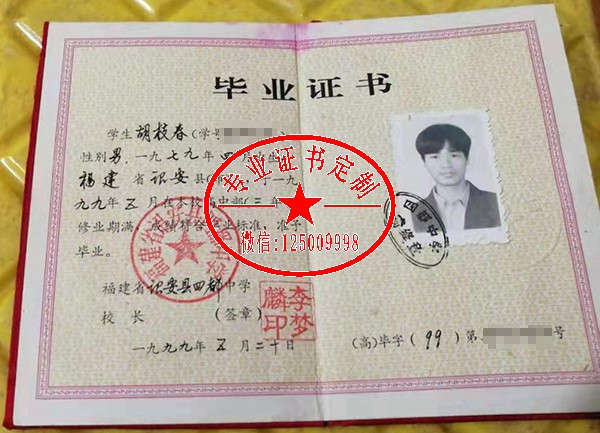 毕业证书
学生胡枝春(学号
性别男,一九七九年四月
福建省诏安县
九九年五月在本校高中部(三年
修业期满,成绩符合毕业标准,准予
毕业。
福建省诏安县四都中学
校 长 (签章)
李梦麟印
一九九九年五月二十日
(高)毕字(99)第 号
专业证书定制
微信:125009998